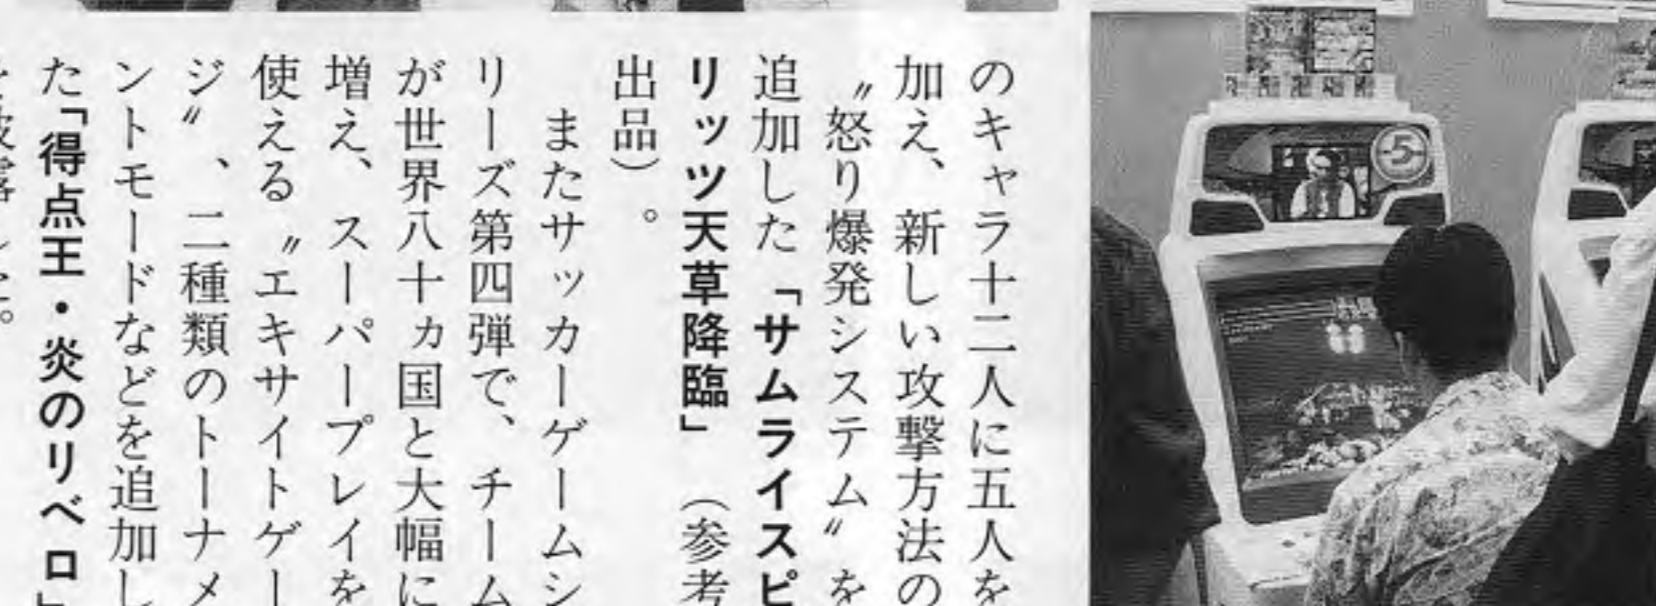 のキャラ十二人に五人を
加え、新しい攻撃方法の
〝怒り爆発システム〟を
追加した「サムライスピ
リッツ天草降臨」（参考
出品）。
またサッカーゲームシ
リーズ第四弾で、チーム
が世界八十カ国と大幅に
増え、スーパープレイを
使える〝エキサイトゲー
ジ〟、二種類のトーナメ
ントモードなどを追加し
た「得点王・炎のリベロ」
5